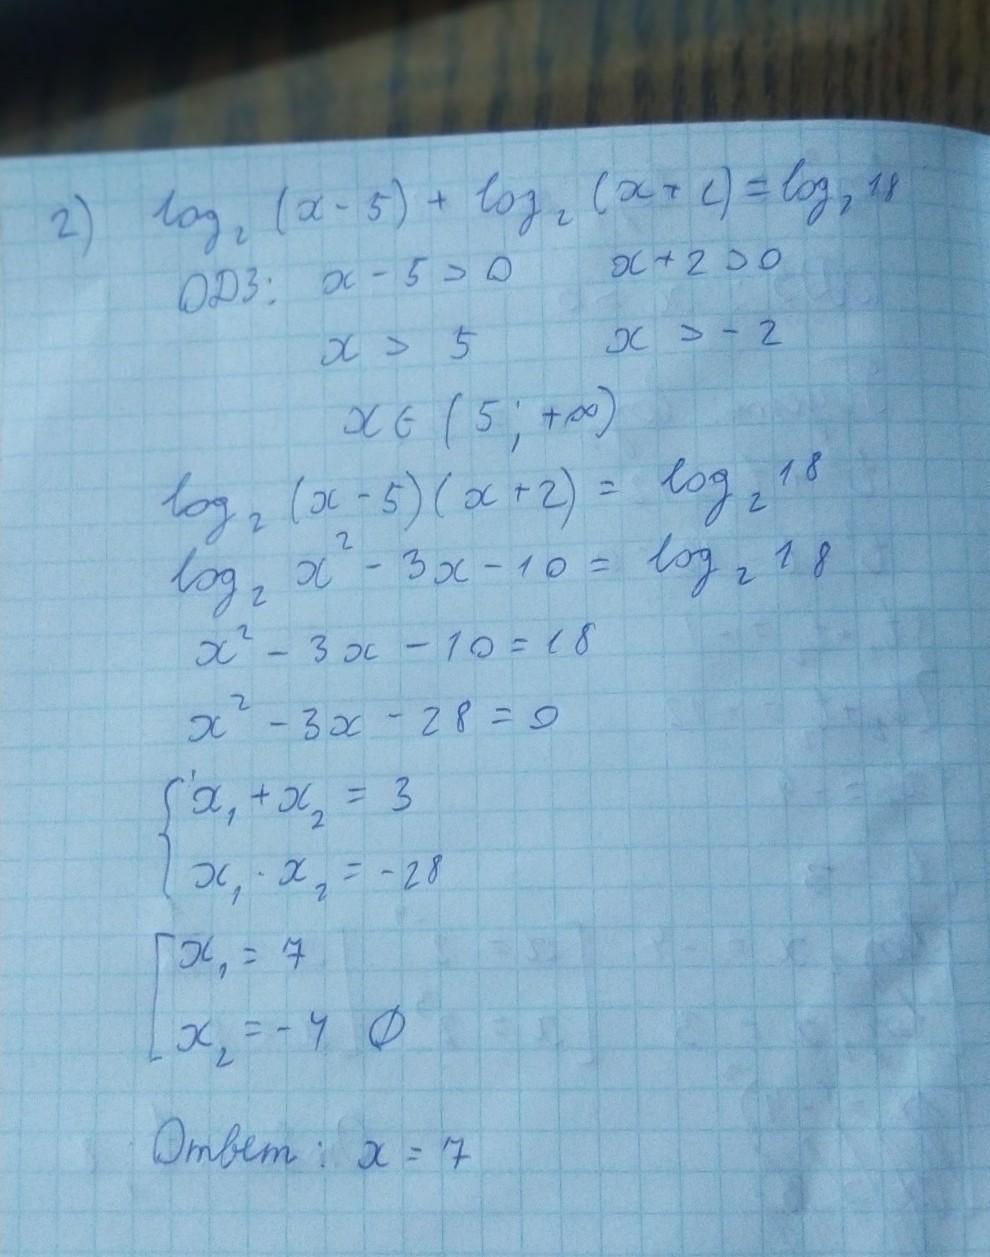 2) log₂ (x - 5) + log₂ (x + 2) = log₂ 18
ОДЗ: x - 5 > 0 x + 2 > 0
x > 5 x > - 2
x ∈ (5; +∞)
log₂ (x - 5)(x + 2) = log₂ 18
log₂ x² - 3x - 10 = log₂ 18
x² - 3x - 10 = 18
x² - 3x - 28 = 0
{ x₁ + x₂ = 3
x₁ · x₂ = -28
[ x₁ = 7
x₂ = - 4 ∅
Ответ: x = 7